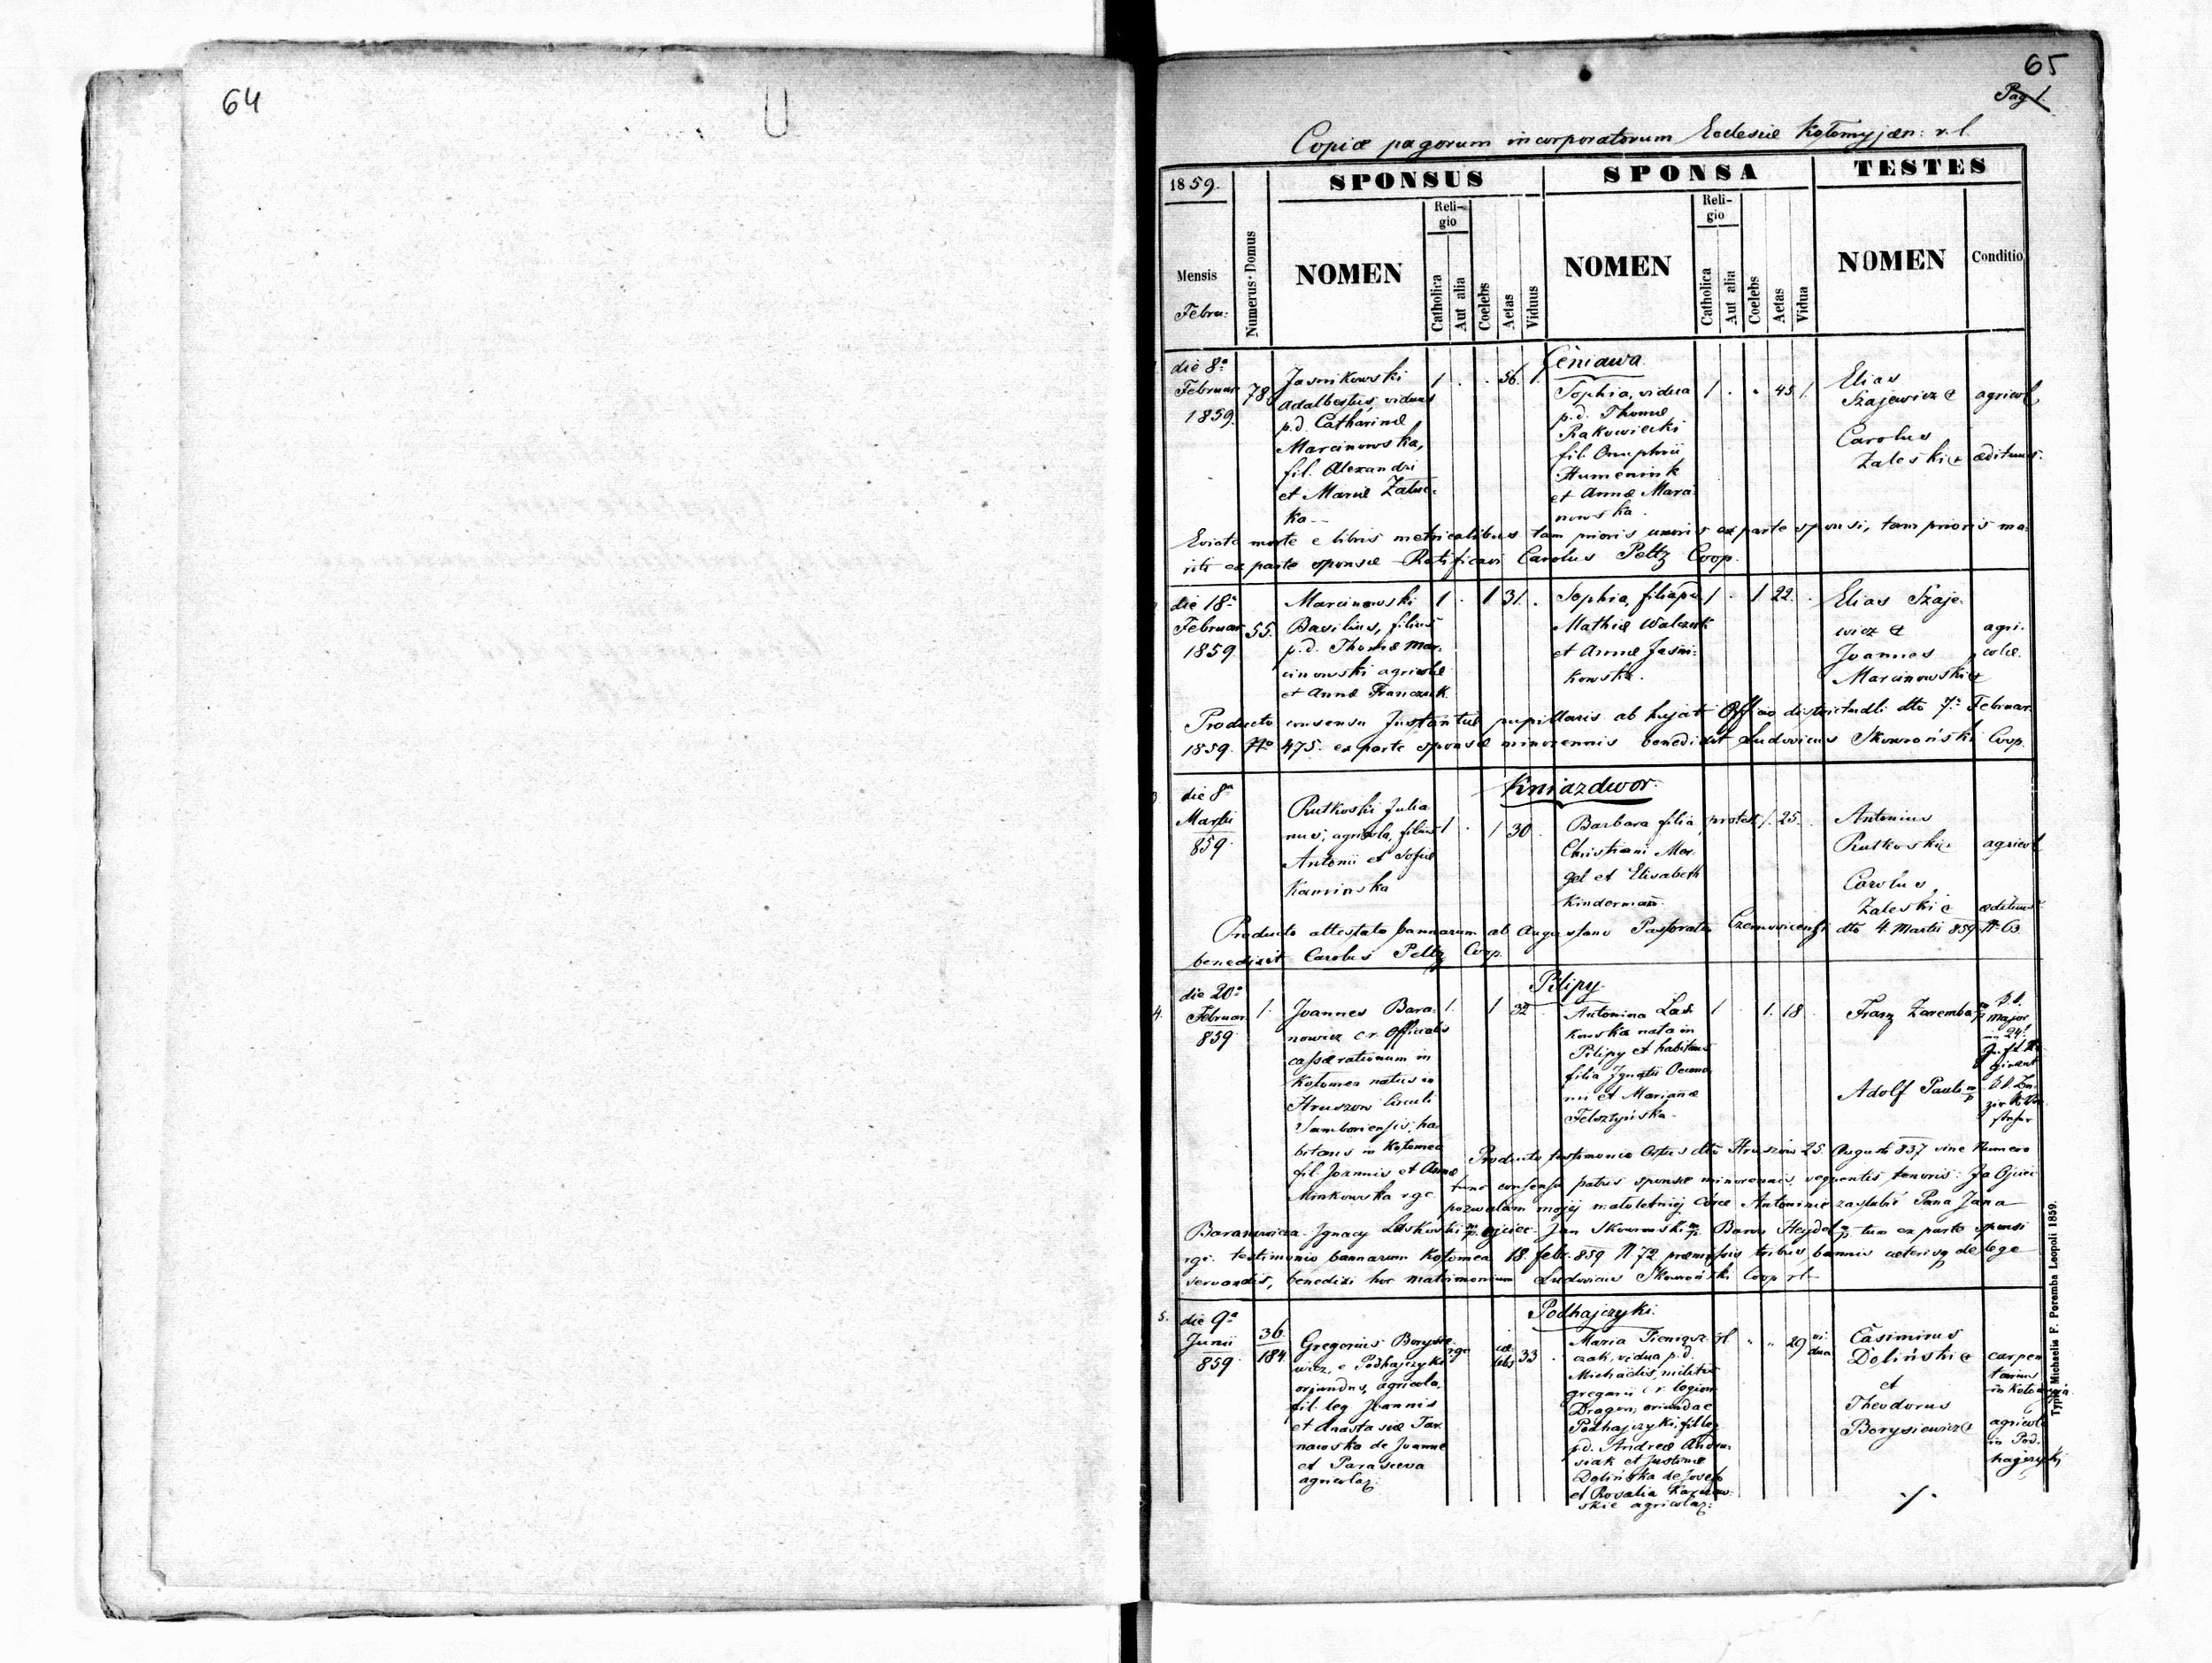 64
65
Pag 1.
Copiæ pagorum incorporatorum Eclesiæ Kołomyjæn: r. l.
1859.
SPONSUS
SPONSA
TESTES
Mensis
Febru:
Numerus Domus
NOMEN
Reli-
gio
Catholica
Aut alia
Coelebs
Aetas
Viduus
NOMEN
Reli-
gio
Catholica
Aut alia
Coelebs
Aetas
Vidua
NOMEN
Conditio
Ceniawa.
die 8ª
Februar
1859.
78.
Jasnikowski
Adalbertus, viduus
p.d. Catharinæ
Marcinowska,
fil. Alexandri
et Mariæ Załuc-
ka --
1 . . 56. 1.
Sophia, vidua
p.d. Thomæ
Rakowiecki
fil. Onuphrii
Humeniuk
et Annæ Marci-
nowska.
1 . . 45 1.
Elias
Szajewicz &
Carolus
Zaleski &
agricol
ædituus.
morte e libris metricalibus tam prioris uxoris ex parte sponsi, tam prioris ma-
riti ex parte sponsæ - Ratificavi Carolus Peltz Coop.
die 18ª
Februar
1859.
55.
Marcinowski
Basilius, filius
p.d. Thomæ Mar-
cinowski agricolæ
et Annæ Franczuk.
1 . 1 31. .
Sophia, filia
Mathiæ Walczuk
et Annæ Jasni-
kowska.
1 . 1 22. .
Elias Szaje-
wicz &
Joannes
Marcinowski &
agri-
colæ.
Producto consensu Instantiæ pupillaris ab hujat Officio districtuali dto 7ª Februar
1859. No 475. ex parte sponsæ minorennis benedixit Ludovicus Skowroński Coop.
Kniazdwor.
die 8ª
Martii
859.
Rutkoski Julia-
nus, agricola, filius
Antonii et Sofiæ
Kaminska
1 . 1 30 .
Barbara filia
Christiani Mer-
gel et Elisabeth
Kinderman̄.
protest. 1. 25. .
Antonius
Rutkoski &
Carolus
Zaleski &
agricol
ædituus
Producto attestato bannarum ab Augustano Pastoratu Czernovicensi dto 4. Martii 859 N 63
benedixit Carolus Peltz Coop.
Pilipy.
4.
die 20ª
Februar.
859
1.
Joannes Bara-
nowicz c.r. Officialis
cassæ rationum in
Kołomea natus in
Hruszow Circuli
Samboriensis, ha-
bitans in Kołomea
fil. Joannis et Annæ
Minkowska r.g.c.
1. 1 32
Antonina Las-
kowska nata in
Pilipy et habitans
filia Ignatii Oecono-
mi et Mariannæ
Felsztyńska.
1 . 1. 18 .
Franz Zaremba
Adolf Pauli
Major
in 24t
Producto testimonio Ortus dto Hruszów 25. Augusti 837 sine Numero
tum consensu patris sponsæ minorennis, sequentis tenoris: Ja Ojciec
pozwalam mojej małoletniej córce Antoninie zaślubić Pana Jana
Baranowicza. Ignacy Laskowski mp. ojciec. Jan Skowronski mp. Baron Heydel mp. tum ex parte sponsi
rgc. testimonio bannarum Kołomea 18. febr. 859 N 72. præmissis tribus bannis cæterisq de lege
servandis, benedixi hoc matrimonium Ludovicus Skowroński Coop rl-
Podhajczyki.
5.
die 9ª
Junii
859.
36.
184.
Gregorius Borysie-
wicz, e Podhajczyki
oriundus, agricola,
fil. leg Joannis
et Anastasiæ Tar-
nawska de Joanne
et Parasceva
agricolaz.
rgc
cæ-
lebs
33 .
Maria Pieniąsz-
czak, vidua p.d.
Michaelis, militis
gregarii c.r. legion
Dragon, oriunda e
Podhajczyki, fil. leg
p.d. Andreæ Andru-
siak et Justinæ
Dolińska de Josefo
et Rosalia
skie agricolaz.
rl
29
vi-
dua
Casimirus
Doliński &
et
Theodorus
Borysiewicz &
carpen
tarius
in Kołomyja
agricola
in Pod-
hajczyki
./.
Typis Michaelis F. Poremba Leopoli 1859.